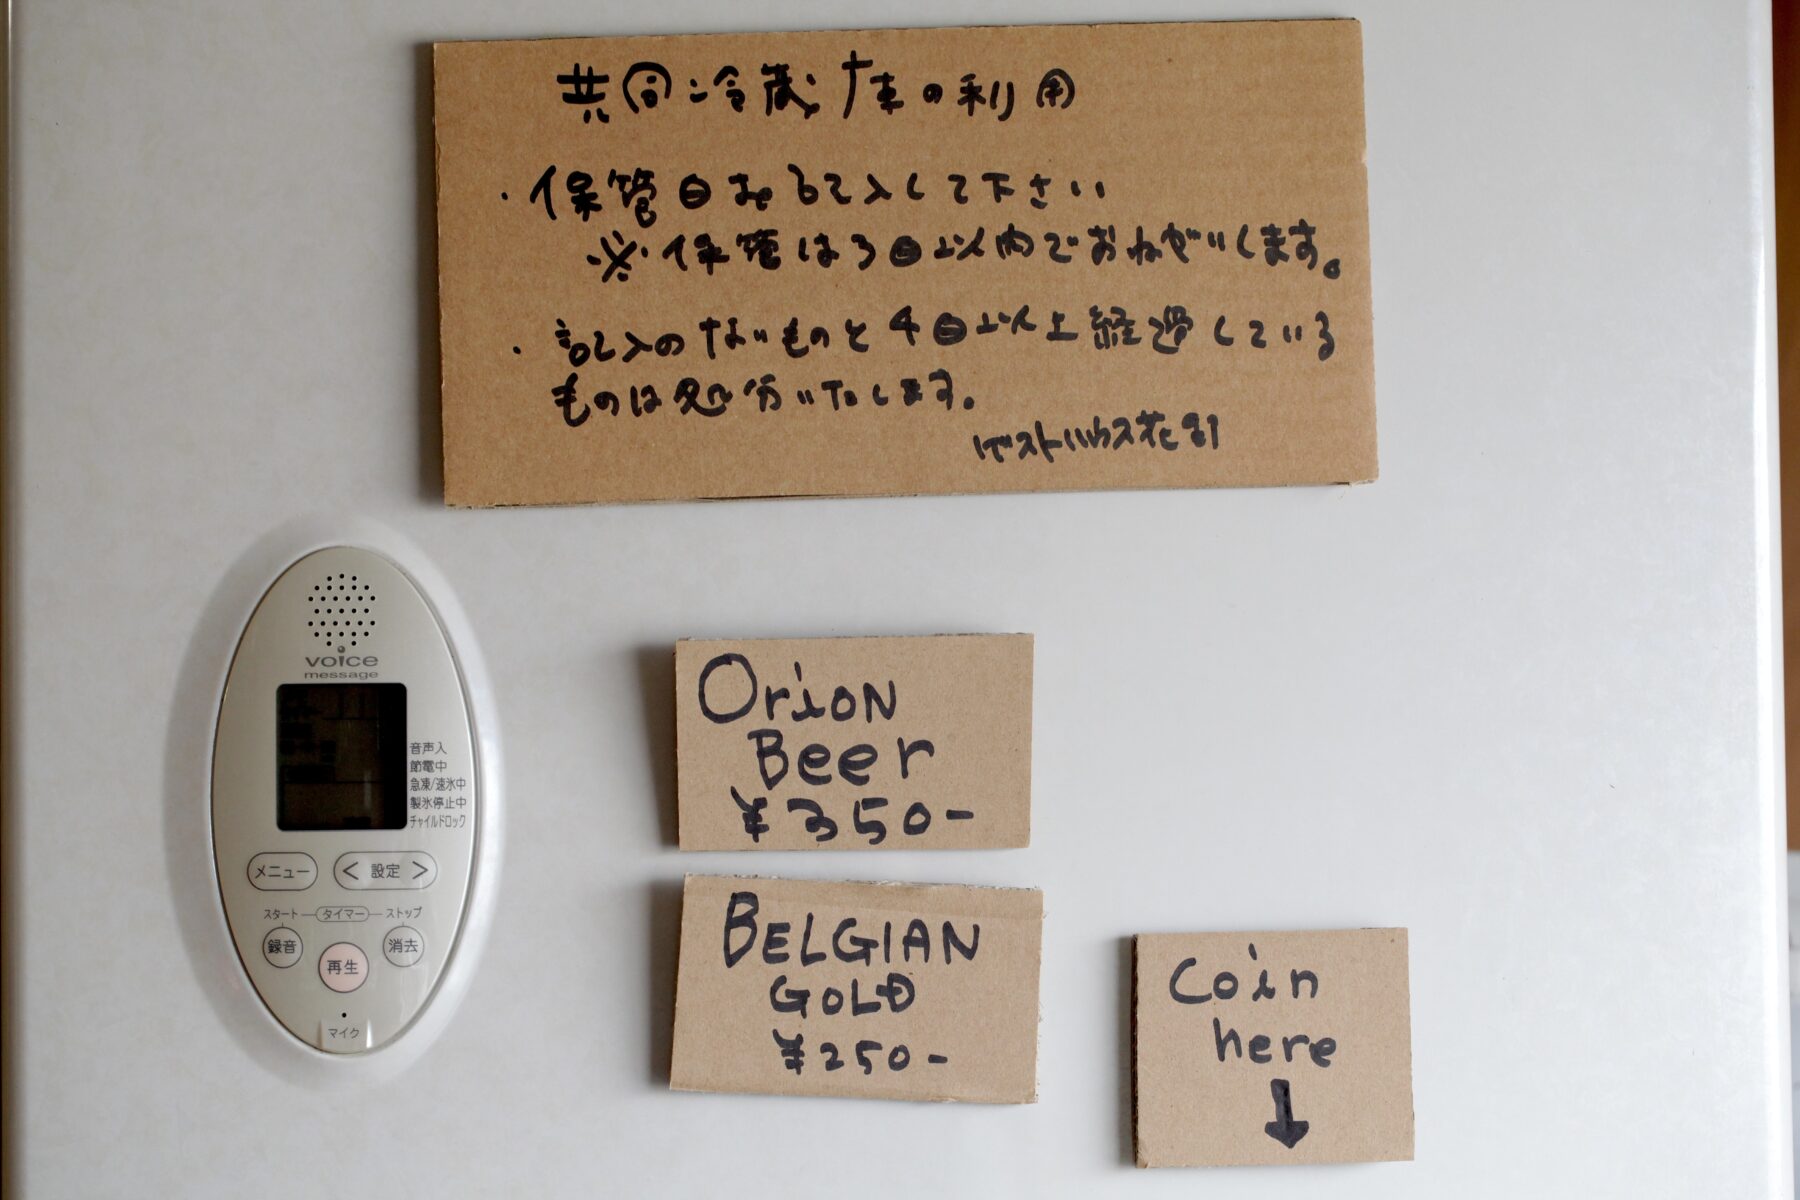 共同冷蔵庫の利用
・保管日お記入して下さい
※保管は3日以内でおねがいします。
・記入のないものと4日以上経過している
ものは処分いたします。
ゲストハウス花
voice
message
音声入
節電中
急凍/速氷中
製氷停止中
チャイルドロック
メニュー < 設定 >
スタート タイマー ストップ
録音 再生 消去
マイク
Orion
Beer
¥350-
BELGIAN
GOLD
¥250-
Coin
here
↓